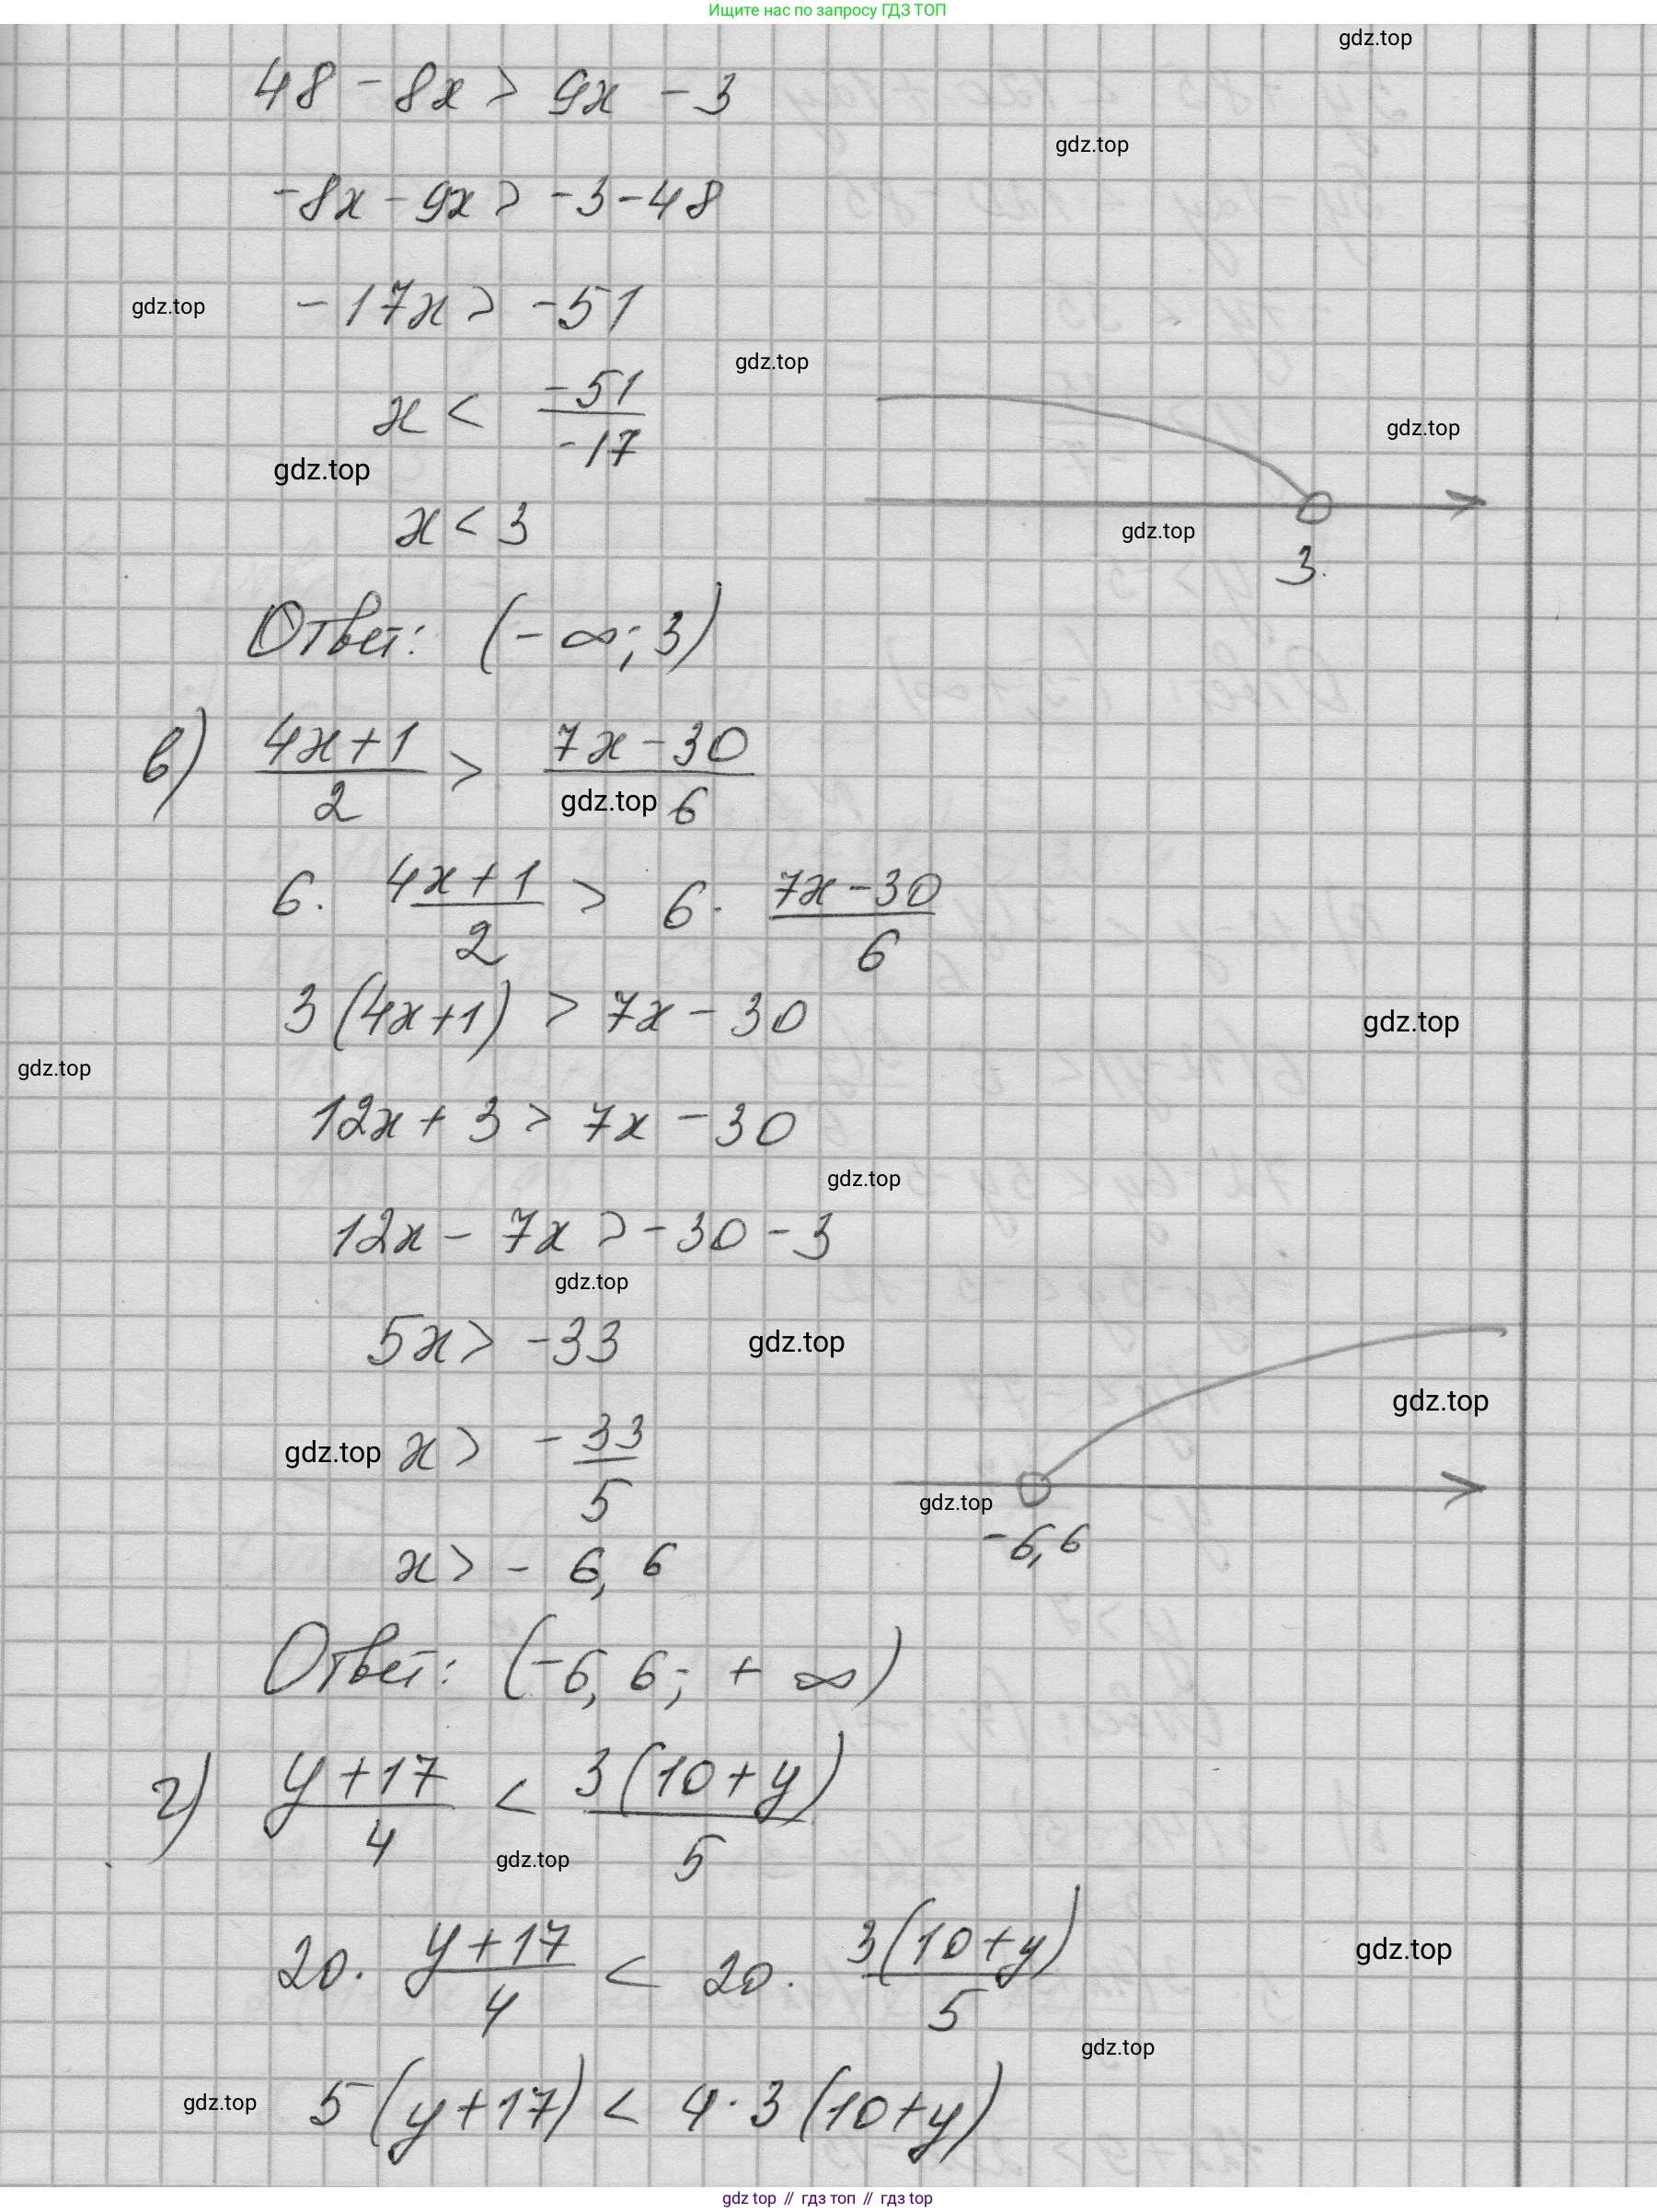 Ищите нас по запросу ГДЗ ТОП
gdz.top
48 - 8x > 9x - 3
gdz.top
-8x - 9x > -3 - 48
gdz.top
-17x > -51
gdz.top
x < -51/-17
gdz.top
gdz.top
gdz.top
x < 3
3.
Ответ: (-∞; 3)
в) (4x+1)/2 > (7x-30)/6
gdz.top
6 · (4x+1)/2 > 6 · (7x-30)/6
3(4x+1) > 7x - 30
gdz.top
gdz.top
12x + 3 > 7x - 30
gdz.top
12x - 7x > -30 - 3
gdz.top
5x > -33
gdz.top
gdz.top
gdz.top
x > - 33/5
gdz.top
-6,6
x > - 6,6
Ответ: (-6,6; +∞)
г) (y+17)/4 < 3(10+y)/5
gdz.top
20 · (y+17)/4 < 20 · 3(10+y)/5
gdz.top
gdz.top
gdz.top
5(y+17) < 4·3(10+y)
gdz top // гдз топ // гдз top